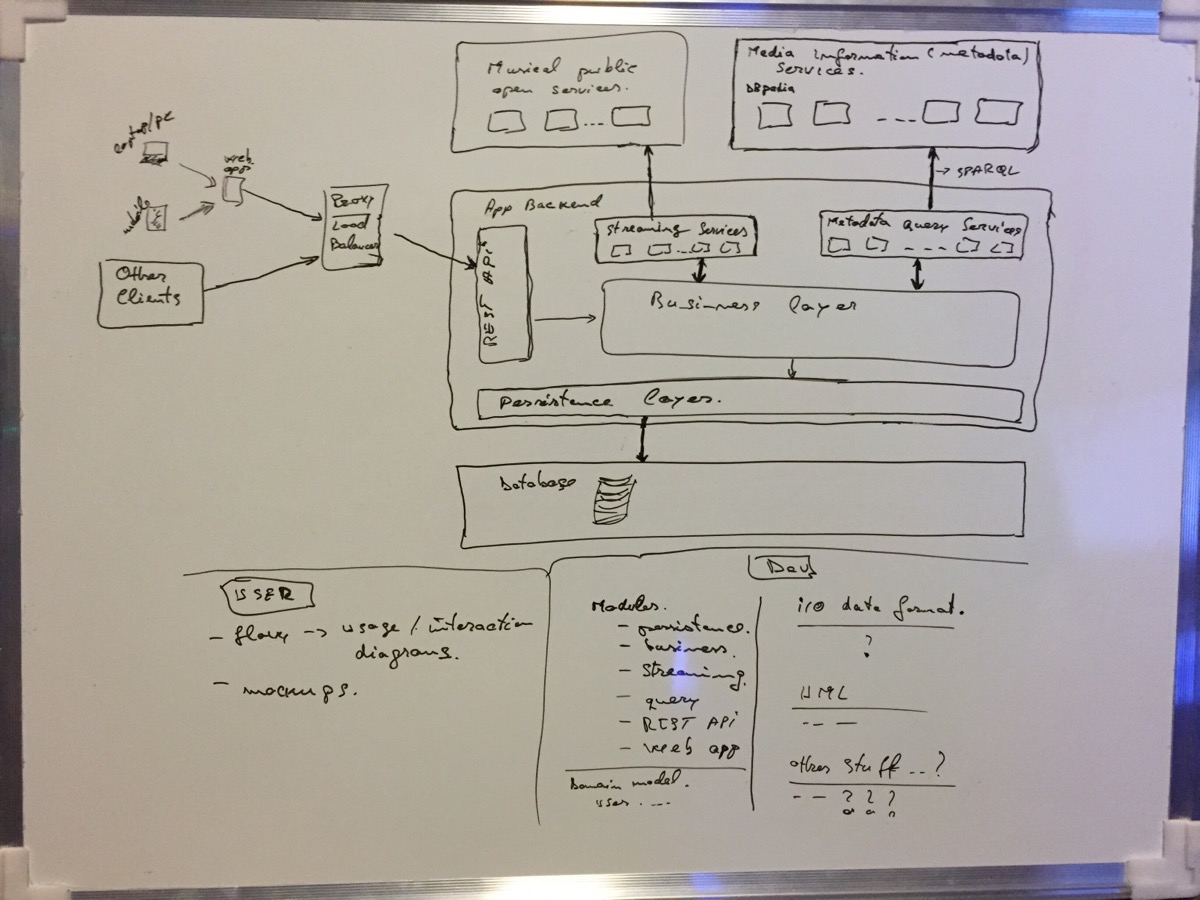 Musical public
open services.
...
Media information (metadata)
services.
DBpedia
---
SPARQL
/PC
web
apps
mobile
Other
Clients
Proxy
Load
Balancer
App Backend
REST API
Streaming Services
...
Metadata query Services
---
Business layer
Persistence layer.
Database
USER
- flow -> usage / interaction
diagrams.
- mockups.
Dev
Modules.
- persistence.
- business.
- streaming.
- query
- REST API
- web app
Domain model.
user. ...
i/o data format.
?
UML
---
other stuff...?
-- ? ? ?